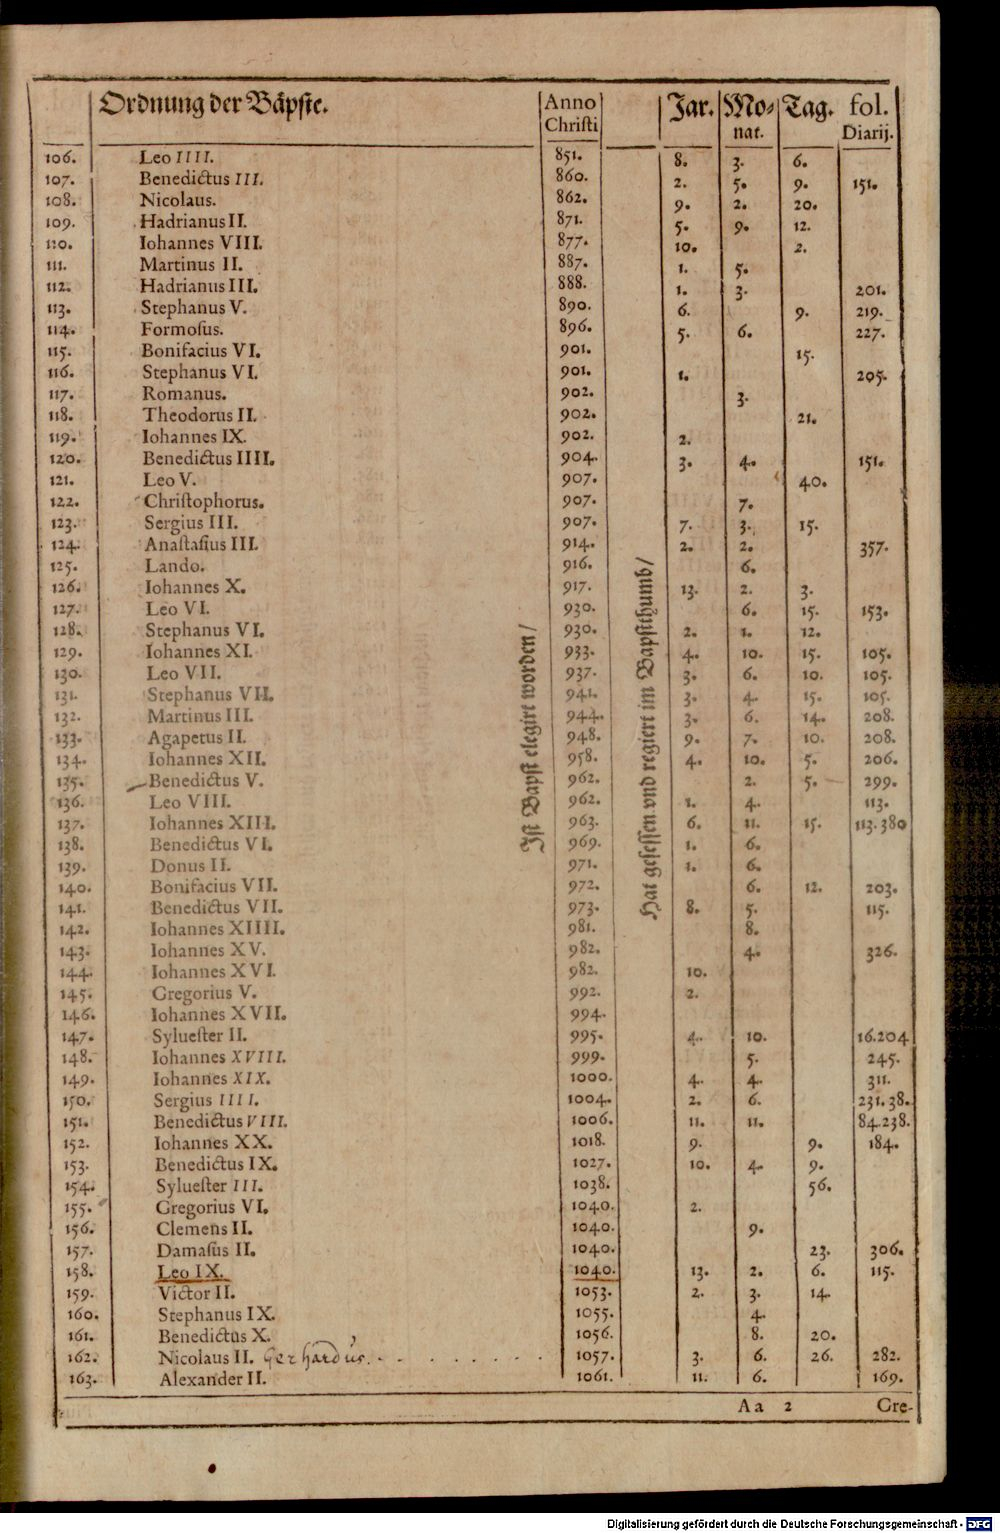 Ordnung der Bäpste. Anno Christi Jar. Mo⸗nat. Tag. fol. Diarij.
Ist Bapst elegirt worden /
Hat gesessen vnd regiert im Bapstthumb /
106. Leo IIII. 851. 8. 3. 6.
107. Benedictus III. 860. 2. 5. 9. 151.
108. Nicolaus. 862. 9. 2. 20.
109. Hadrianus II. 871. 5. 9. 12.
110. Iohannes VIII. 877. 10. 2.
111. Martinus II. 887. 1. 5.
112. Hadrianus III. 888. 1. 3. 201.
113. Stephanus V. 890. 6. 9. 219.
114. Formoſus. 896. 5. 6. 227.
115. Bonifacius VI. 901. 15.
116. Stephanus VI. 901. 1. 205.
117. Romanus. 902. 3.
118. Theodorus II. 902. 21.
119. Iohannes IX. 902. 2.
120. Benedictus IIII. 904. 3. 4. 151.
121. Leo V. 907. 40.
122. Chriſtophorus. 907. 7.
123. Sergius III. 907. 7. 3. 15.
124. Anaſtaſius III. 914. 2. 2. 357.
125. Lando. 916. 6.
126. Iohannes X. 917. 13. 2. 3.
127. Leo VI. 930. 6. 15. 153.
128. Stephanus VI. 930. 2. 1. 12.
129. Iohannes XI. 933. 4. 10. 15. 105.
130. Leo VII. 937. 3. 6. 10. 105.
131. Stephanus VII. 941. 3. 4. 15. 105.
132. Martinus III. 944. 3. 6. 14. 208.
133. Agapetus II. 948. 9. 7. 10. 208.
134. Iohannes XII. 958. 4. 10. 5. 206.
135. Benedictus V. 962. 2. 5. 299.
136. Leo VIII. 962. 1. 4. 113.
137. Iohannes XIII. 963. 6. 11. 15. 113.380
138. Benedictus VI. 969. 1. 6.
139. Donus II. 971. 1. 6.
140. Bonifacius VII. 972. 6. 12. 203.
141. Benedictus VII. 973. 8. 5. 115.
142. Iohannes XIIII. 981. 8.
143. Iohannes XV. 982. 4. 326.
144. Iohannes XVI. 982. 10.
145. Gregorius V. 992. 2.
146. Iohannes XVII. 994.
147. Sylueſter II. 995. 4. 10. 16.204
148. Iohannes XVIII. 999. 5. 245.
149. Iohannes XIX. 1000. 4. 4. 311.
150. Sergius IIII. 1004. 2. 6. 231.38.
151. Benedictus VIII. 1006. 11. 11. 84.238.
152. Iohannes XX. 1018. 9. 9. 184.
153. Benedictus IX. 1027. 10. 4. 9.
154. Sylueſter III. 1038. 56.
155. Gregorius VI. 1040. 2.
156. Clemens II. 1040. 9.
157. Damaſus II. 1040. 23. 306.
158. Leo IX. 1040. 13. 2. 6. 115.
159. Victor II. 1053. 2. 3. 14.
160. Stephanus IX. 1055. 4.
161. Benedictus X. 1056. 8. 20.
162. Nicolaus II. Gerhardus. 1057. 3. 6. 26. 282.
163. Alexander II. 1061. 11. 6. 169.
Aa 2 Gre-
Digitalisierung gefördert durch die Deutsche Forschungsgemeinschaft - DFG